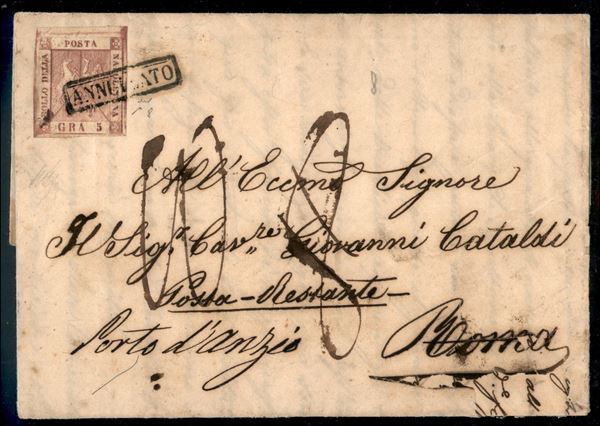 POSTA
BOLLO DELLA
NAPOLETANA
GRA 5
ANNULLATO
8
All'Eccmo Signore
Il Sigr Cavre Giovanni Cataldi
Posta-Restante-
Porto d'anzio Roma